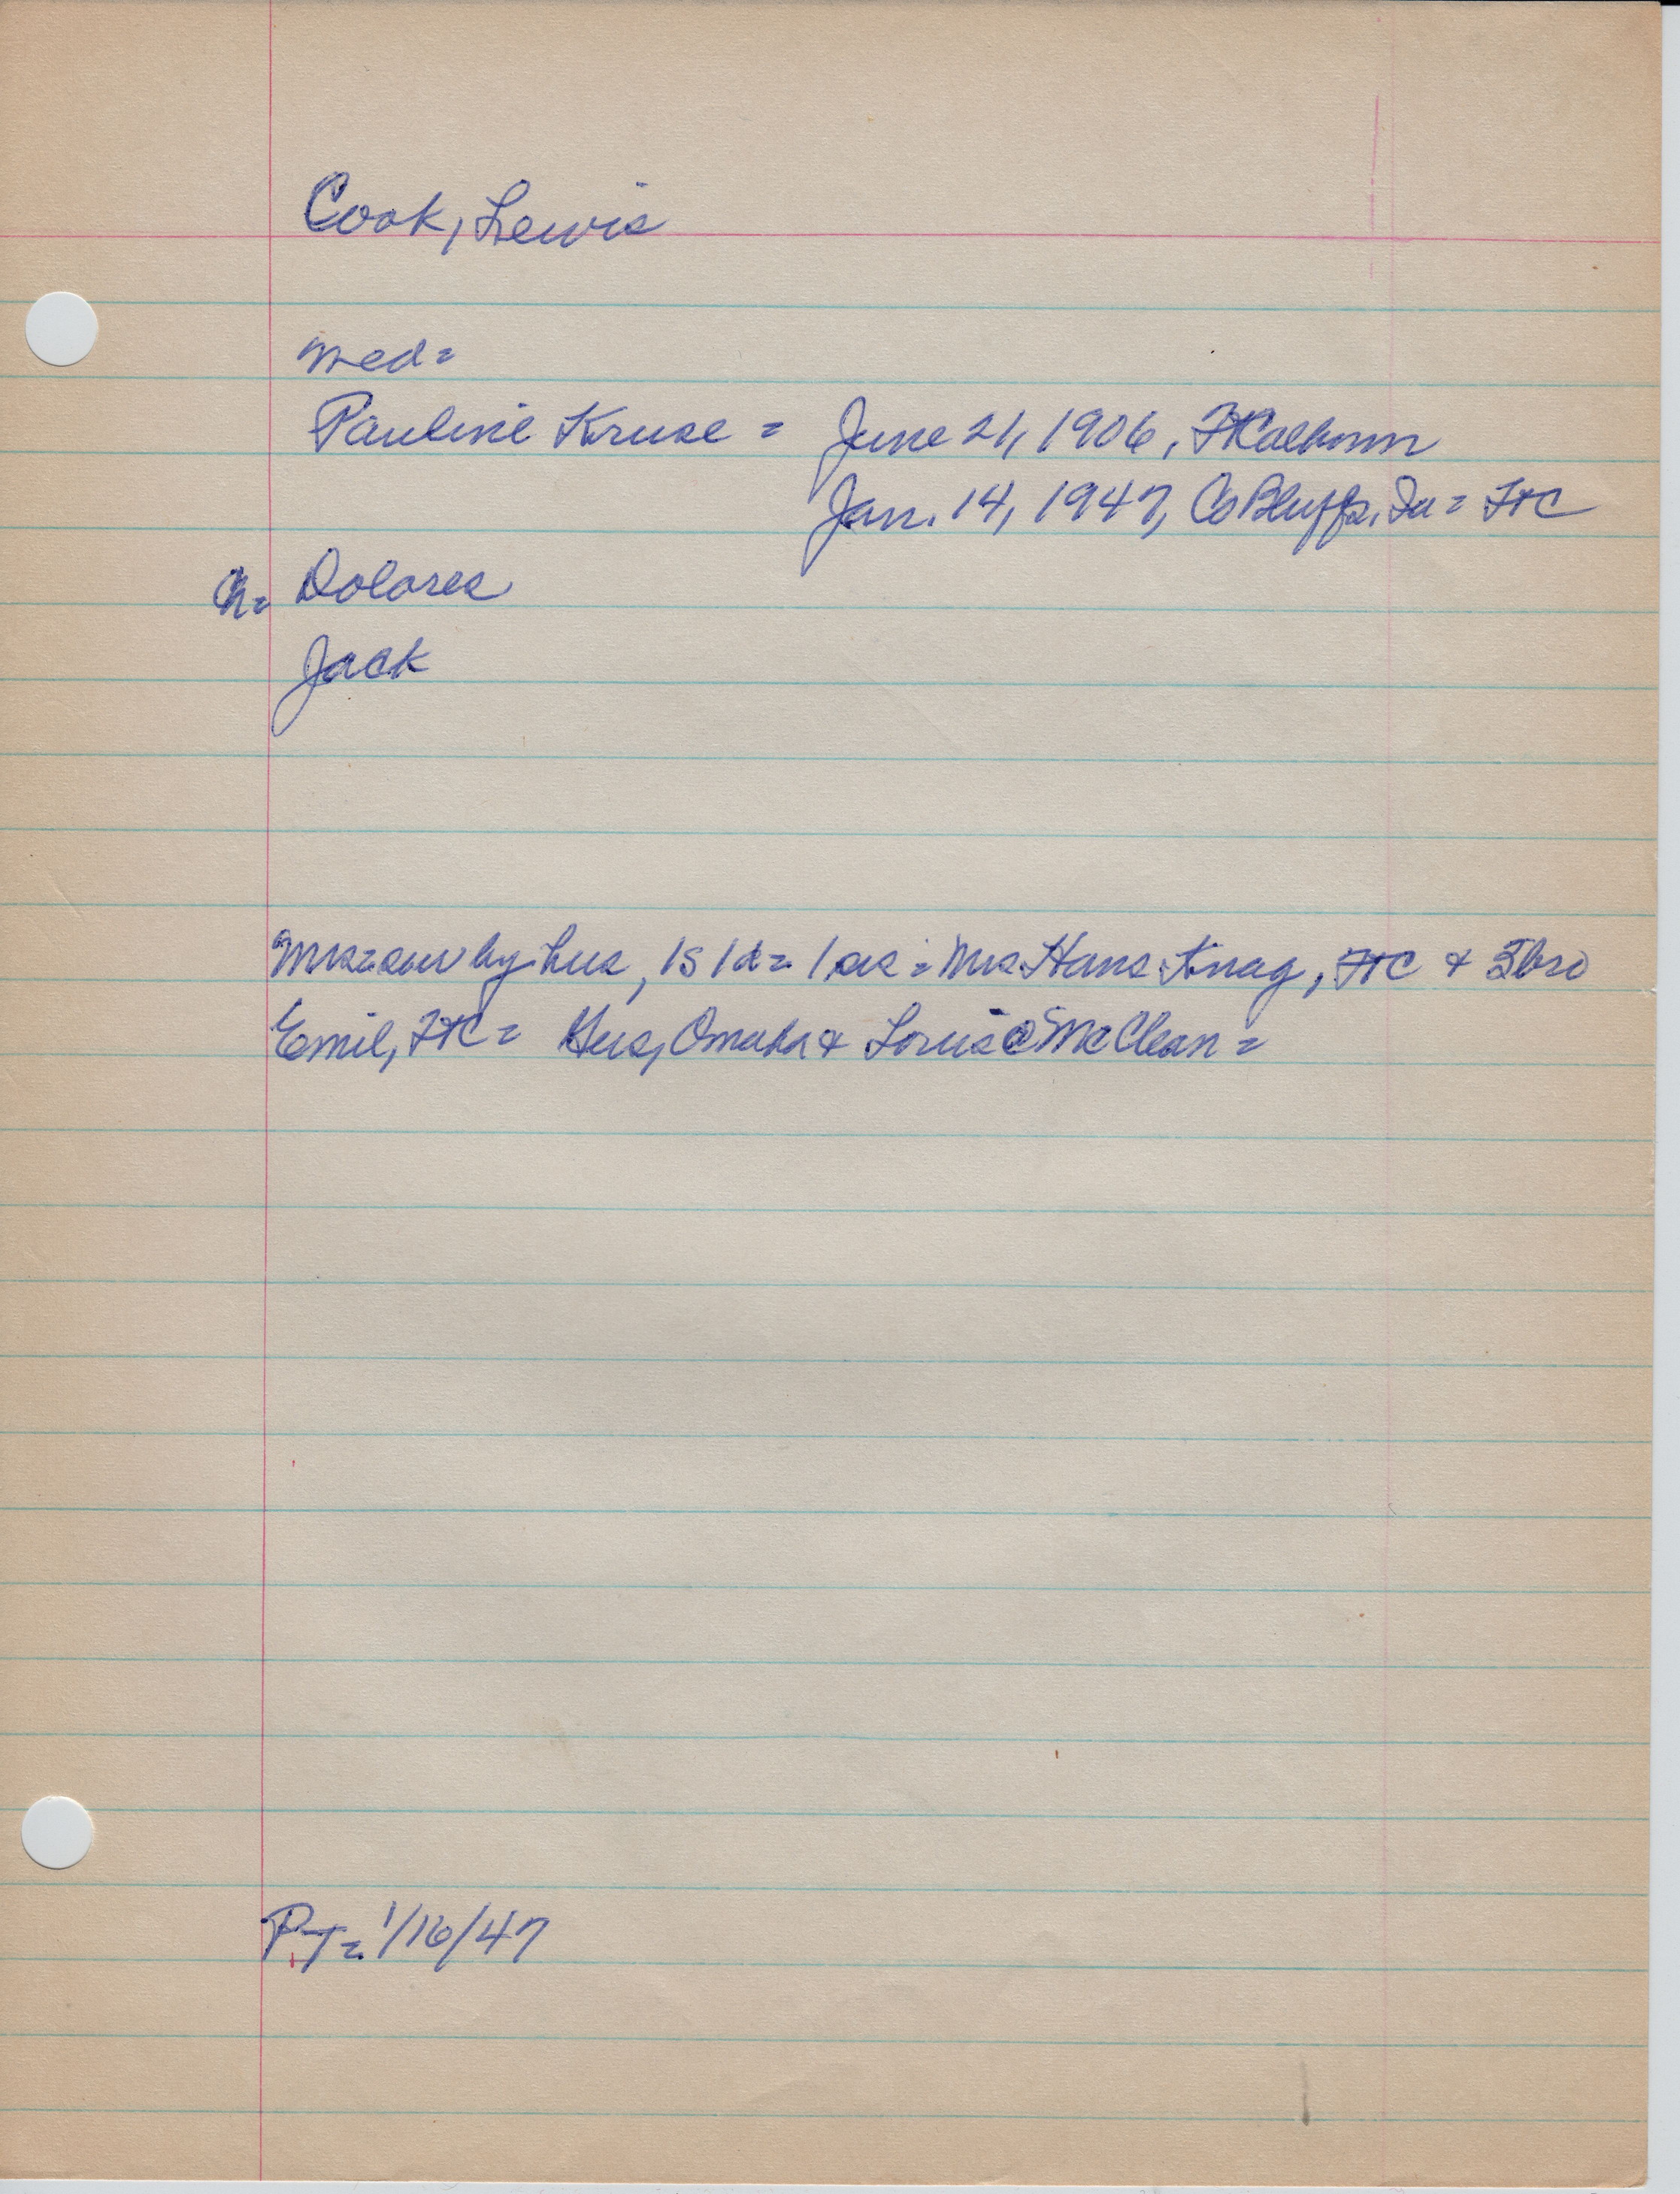 Cook, Lewis
Med=
Pauline Kruse = June 21, 1906, FtCalhoun
Jan. 14, 1947, Co Bluffs, Ia = FtC
Ch= Dolores
Jack
Mrs=sur by hus, 1s 1d= 1 sis = Mrs Hans Knag, FtC & 3bro
Emil, FtC = Gus, Omaha & Louis @ McClean =
PT= 1/16/47